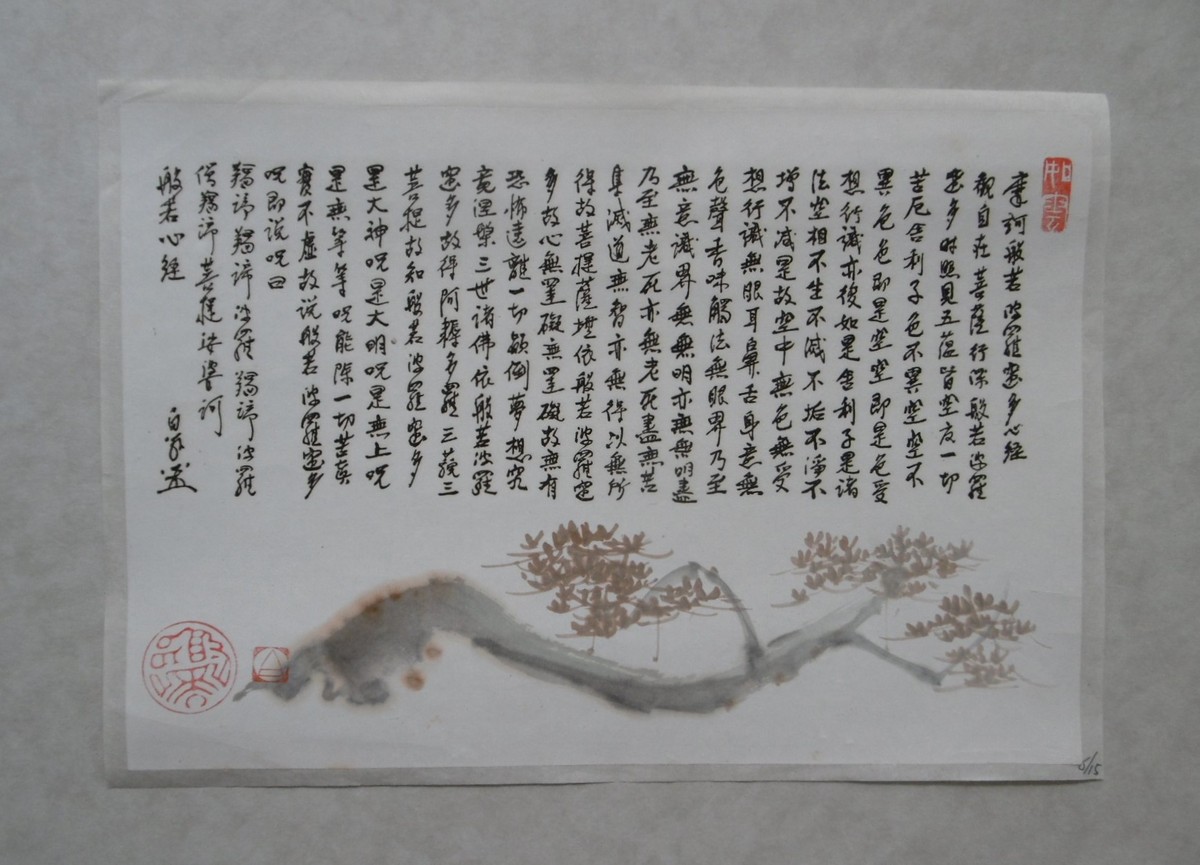 如雲
摩訶般若波羅蜜多心經
觀自在菩薩行深般若波羅
蜜多時照見五蘊皆空度一切
苦厄舍利子色不異空空不
異色色即是空空即是色受
想行識亦復如是舍利子是諸
法空相不生不滅不垢不淨不
增不減是故空中無色無受
想行識無眼耳鼻舌身意無
色聲香味觸法無眼界乃至
無意識界無無明亦無無明盡
乃至無老死亦無老死盡無苦
集滅道無智亦無得以無所
得故菩提薩埵依般若波羅蜜
多故心無罣礙無罣礙故無有
恐怖遠離一切顛倒夢想究
竟涅槃三世諸佛依般若波羅
蜜多故得阿耨多羅三藐三
菩提故知般若波羅蜜多
是大神呪是大明呪是無上呪
是無等等呪能除一切苦真
實不虛故說般若波羅蜜多
呪即說呪曰
羯諦羯諦波羅羯諦波羅
僧羯諦菩提娑婆訶
般若心經
5/15